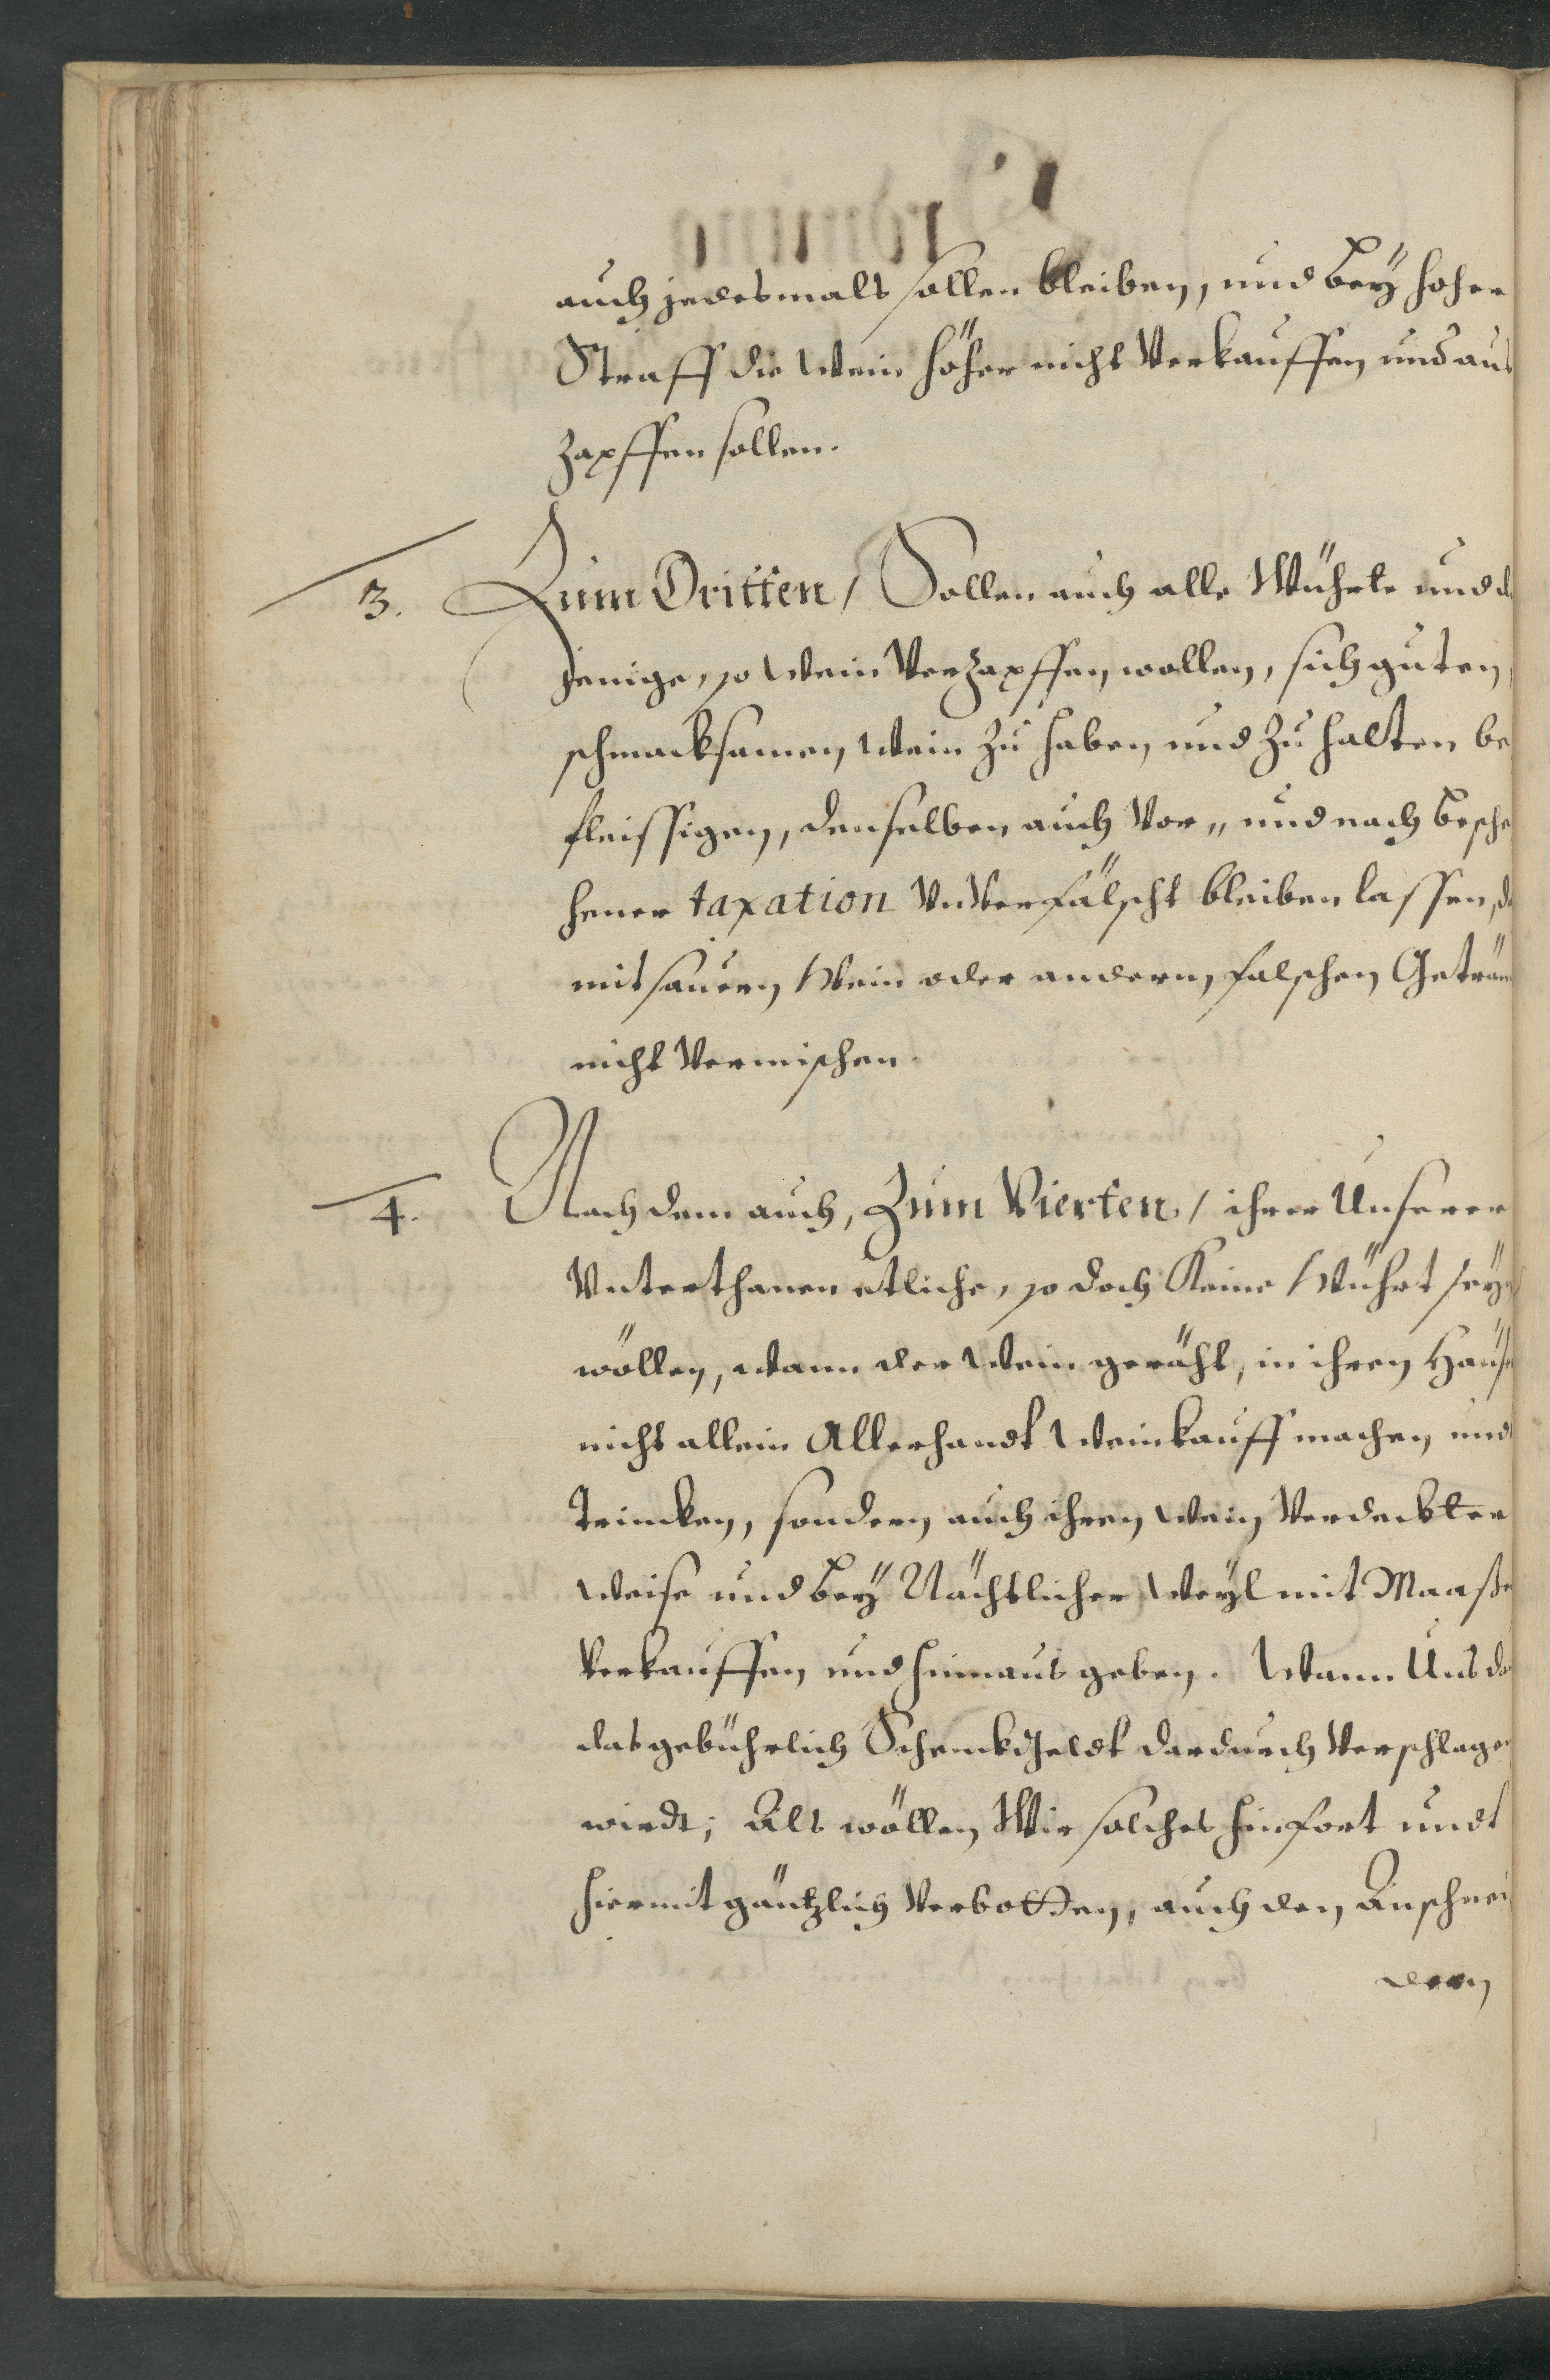 auch jedesmals sollen bleiben, und bey hoher
Straff die Wein höher nicht Verkauffen und aus
zapffen sollen.
3. Zum Dritten / Sollen auch alle Würhte und d
jenige, so Wein Verzapffen wollen, sich guten,
schmacksamen Wein zu haben und zu halten be
fleissigen, denselben auch Vor„ und nach besche
hener taxation Unverfälscht bleiben lassen, d
mit sauern Wein oder andern falschen Geträn
nicht Vermischen.
4. Nach dem auch, Zum Vierten / ihrer Unserer
Vnterthanen etliche, so doch Keine Würht seyn
wöllen, wann der Wein geräht, in ihren Häuse
nicht allein Allerhandt Weinkauff machen und
Trincken, sondern auch ihren Wein Verdeckter
Weise und bey Nächtlicher Weyl mit Maaße
Verkauffen und hinnaus geben. Wann Uns da
das gebührlich Schenckgeldt dardurch Verschlagen
wirdt; Als wöllen Wir solches hinfort undt
hiermit gäntzlich Verbotten, auch den Anschnei
dern